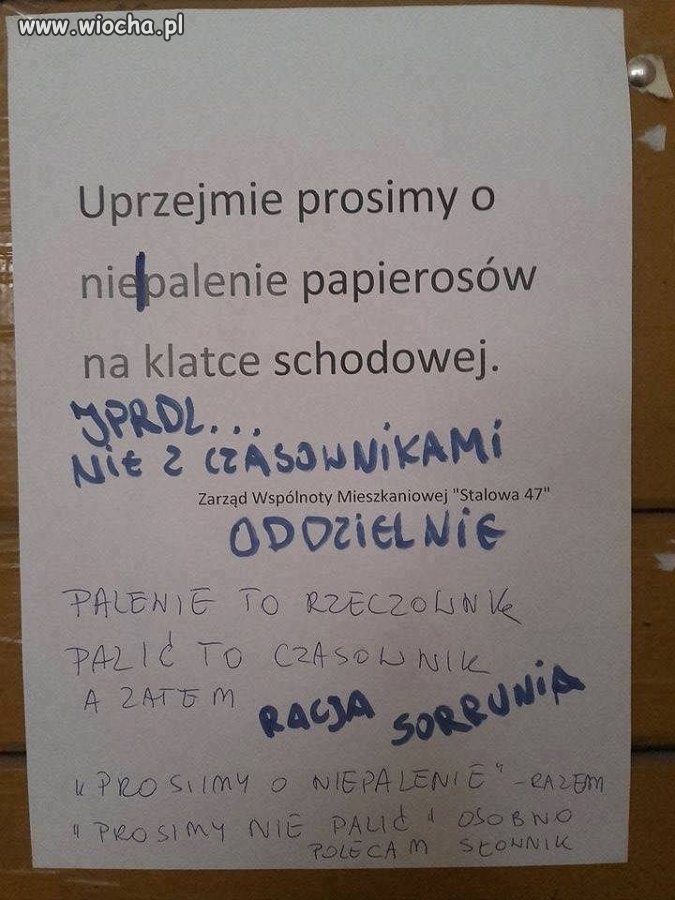 www.wiocha.pl
Uprzejmie prosimy o
nie|palenie papierosów
na klatce schodowej.
JPRDL...
NIE Z CZASOWNIKAMI
Zarząd Wspólnoty Mieszkaniowej "Stalowa 47"
ODDZIELNIE
PALENIE TO RZECZOWNIK
PALIĆ TO CZASOWNIK
A ZATEM
RACJA SORRUNIA
"PROSIIMY O NIEPALENIE" - RAZEM
"PROSIMY NIE PALIĆ" OSOBNO
POLECAM SŁOWNIK